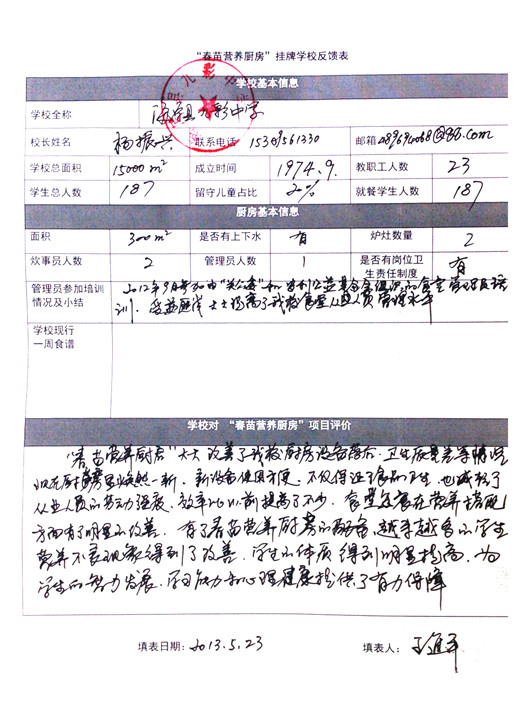 “春苗营养厨房”挂牌学校反馈表
学校基本信息
学校全称 九彩中学
校长姓名 杨振兴 联系电话 15309561330 邮箱
学校总面积 15000m² 成立时间 1974.9. 教职工人数 23
学生总人数 187 留守儿童占比 2% 就餐学生人数 187
厨房基本信息
面积 300m² 是否有上下水 有 炉灶数量 2
炊事员人数 2 管理员人数 1 是否有岗位卫
生责任制度 有
管理员参加培训 2012年9月参加由 食堂管理员培
情况及小结 训，受益匪浅 大大提高了我校食堂从业人员管理水平
学校现行
一周食谱
学校对 “春苗营养厨房”项目评价
“春苗营养厨房”大大改善了我校厨房设备落后、卫生质量差等情况
现在厨房焕然一新，新设备使用方便，不仅保证了食品卫生，也减轻了
从业人员的劳动强度，效率比以前提高了不少，食堂饭食在营养搭配
方面有了明显的改善，有了春苗营养厨房的配备，越来越多的学生
营养不良现象得到了改善，学生的体质得到明显提高，为
学生的智力发展、学习能力和心理健康提供了有力保障
填表日期：2013.5.23 填表人：